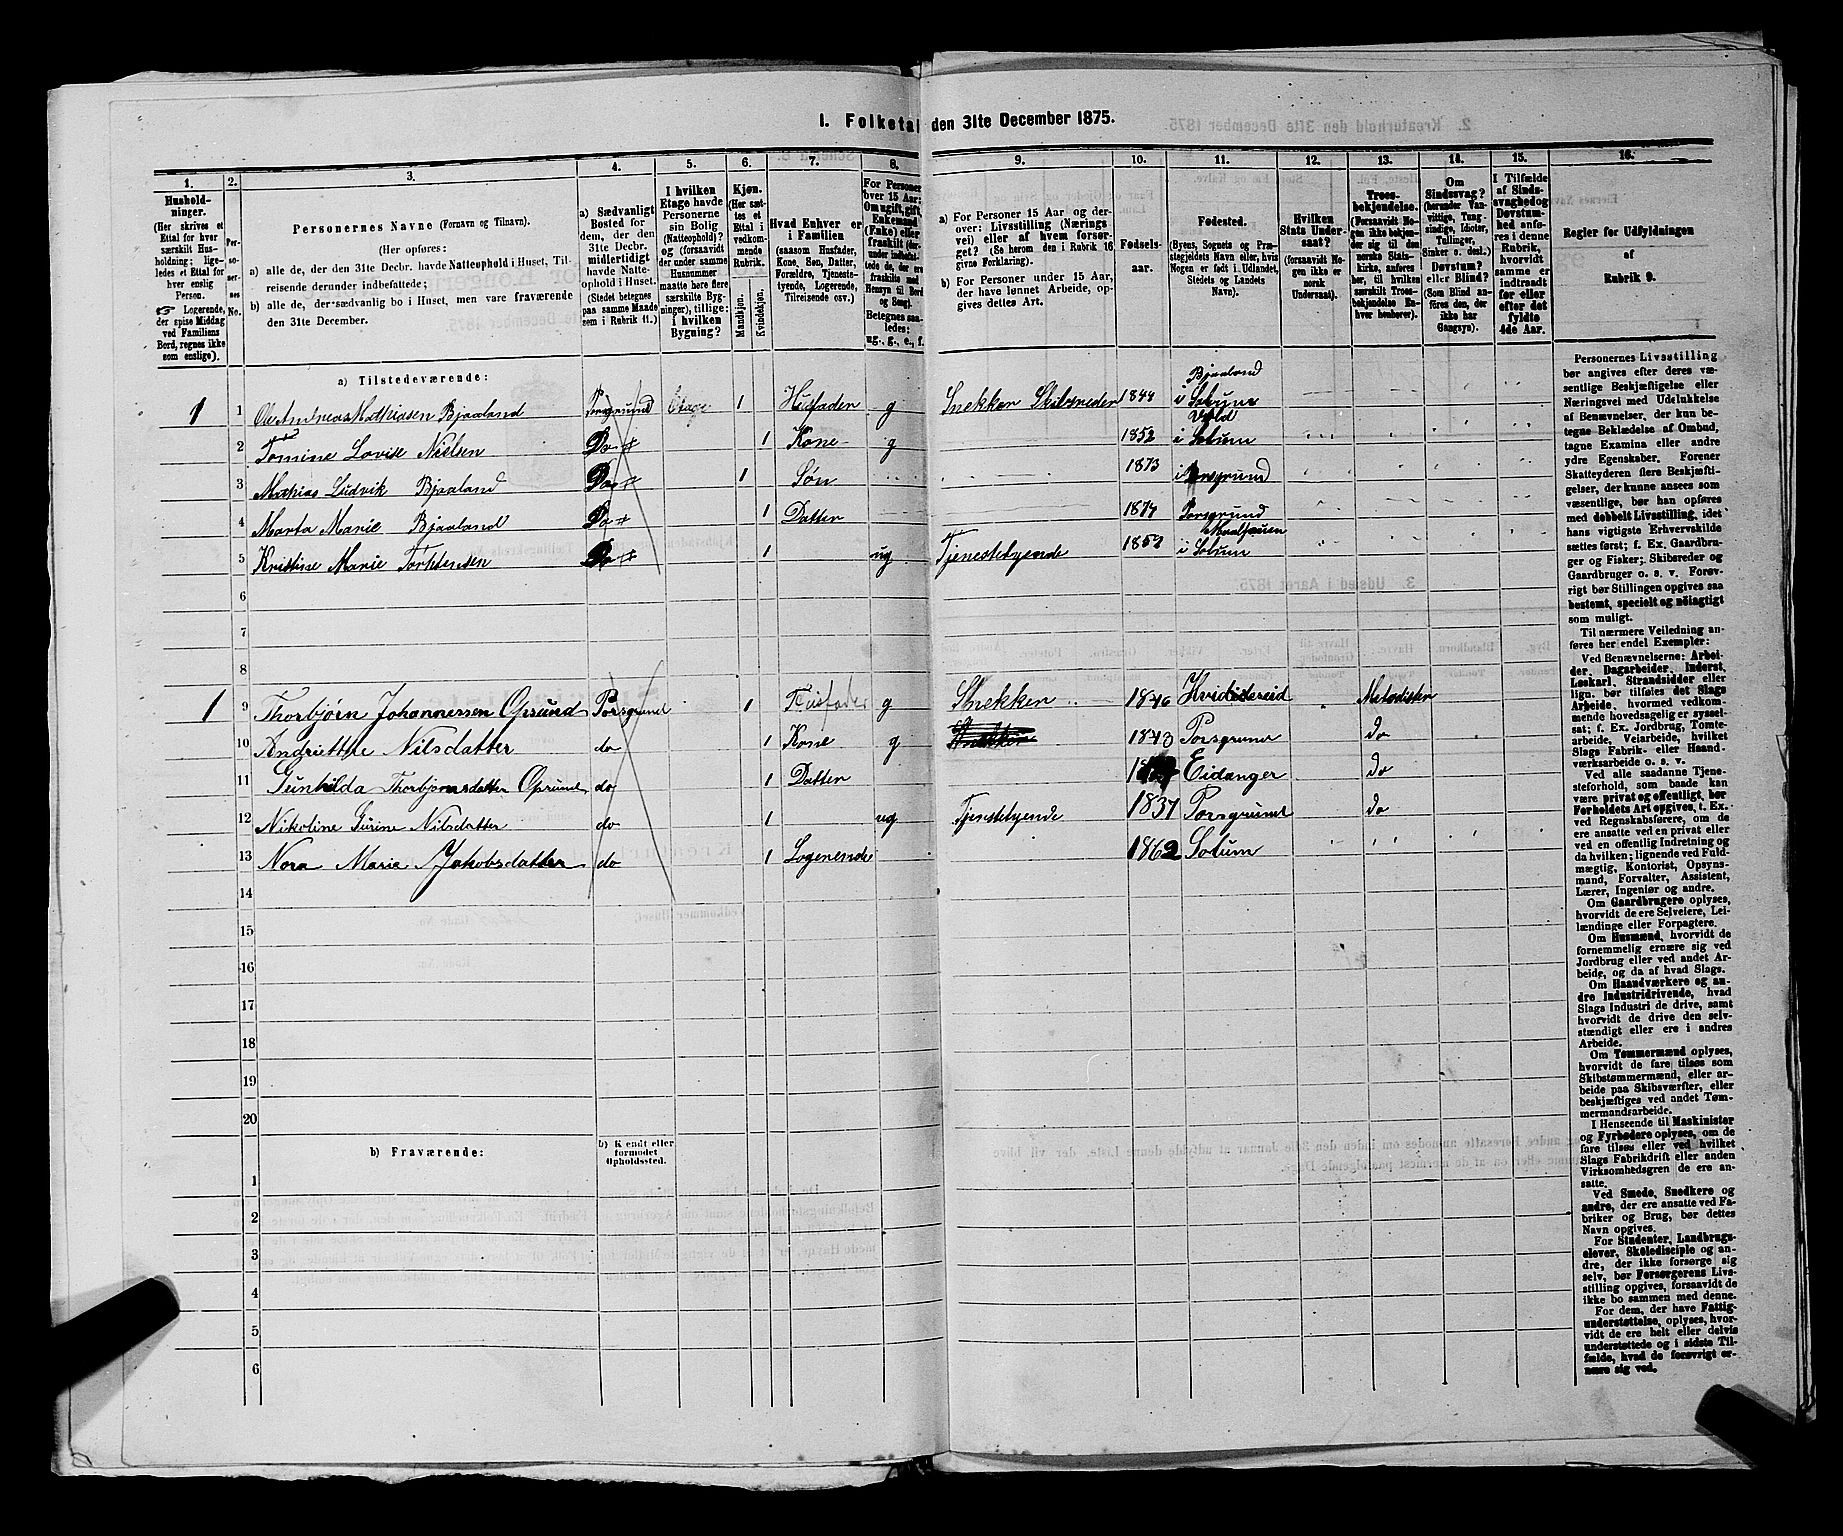 1. Folketal den 31te December 1875.
1. 2. 3. 4. 5. 6. 7. 8. 9. 10. 11. 12. 13. 14. 15. 16.
Hushold-
ninger.
(Her skrives et
Ettal for hver
særskilt Hus-
holdning; lige-
ledes et Ettal for
hver enslig
Person.
Logerende,
der spise Middag
ved Familiens
Bord, regnes ikke
som enslige).
Per-
so-
ner-
nes
No.
Personernes Navne (Fornavn og Tilnavn).
(Her opføres:
a) alle de, der den 31te Decbr. havde Natteophold i Huset, Til-
reisende derunder indbefattede;
b) alle de, der sædvanlig bo i Huset, men vare fraværende
den 31te December.
a) Sædvanligt
Bosted for
dem, der den
31te Decbr.
midlertidigt
havde Natte-
ophold i Huset.
(Stedet betegnes
paa samme Maade
som i Rubrik 11.)
I hvilken
Etage havde
Personerne
sin Bolig
(Natteophold)?
og (forsaavidt
der under samme
Husnummer
maatte høre flere
særskilte Byg-
ninger), tillige:
i hvilken
Bygning?
Kjøn.
(Her sæt-
tes et
Ettal i
vedkom-
mende
Rubrik.
Mandkjøn.
Kvindekjøn.
Hvad Enhver er
i Familien
(saasom Husfader,
Kone, Søn, Datter,
Forældre, Tjeneste-
tyende, Logerende,
Tilreisende osv.)
For Personer
over 15 Aar:
Om ugift, gift,
Enkemand
(Enke) eller
fraskilt (der-
under indbefat-
tede de, der ere
fraskilte med
Hensyn til Bord
og Seng).
Betegnes saa-
ledes:
ug., g., e., f.
a) For Personer 15 Aar og der-
over: Livsstilling (Nærings-
vei) eller af hvem forsør-
get? (Se herom den i Rubrik 16
givne Forklaring).
b) For Personer under 15 Aar,
der have lønnet Arbeide, op-
gives dettes Art.
Fødsels-
aar.
Fødested.
(Byens, Sognets og Præ-
stegjeldets Navn eller, hvis
Nogen er født i Udlandet,
Stedets og Landets
Navn).
Hvilken
Stats Under-
saat?
(forsaavidt No-
gen ikke er
norsk
Undersaat).
Troes-
bekjendelse.
(Forsaavidt No-
gen ikke bekjen-
der sig til den
norske Stats-
kirke, anføres
her, til hvilken
særskilt Troes-
bekjendelse En-
hver henhører).
Om
Sindssvag?
(herunder Van-
vittige, Tung-
sindige, Idioter,
Tullinger,
Sinker o. desl.)
eller
Døvstum?
eller Blind?
(Som Blind an-
føres den, der
ikke har
Gangsyn).
I Tilfælde
af Sinds-
svaghed og
Døvstum-
hed anfø-
res i denne
Rubrik,
hvorvidt
samme er
indtraadt
før eller
efter det
fyldte
4de Aar.
Regler for Udfyldningen
af
Rubrik 9.
a) Tilstedeværende:
1 1 Ole Andreas Mathiasen Bjaaland Porsgrund Etage 1 Husfader g Snekker 1844 Bjaaland i Solum
2 Tomine Lovise Nielsen Do 1 Kone g 1852 Vold i Solum
3 Mathias Ludvik Bjaaland Do 1 Søn 1873 i Porsgrund
4 Marta Marie Bjaaland Do 1 Datter 1874 Porsgrund
5 Kristine Marie Do 1 ug Tjenestetyende 1853 i Solum
6
7
8
1 9 Thorbjørn Johannessen Opsund Porsgrund 1 Husfader g Snekker 1846 Hvideseid Metodister
10 Andriethe Nilsdatter do 1 Kone g 1843 Porsgrund do
11 Gunhilda Thorbjørnsdatter Opsund do 1 Datter Eidanger do
12 Nikoline Gurine Nilsdatter do 1 ug Tjenstetyende 1837 Porsgrund do
13 Nora Marie Jakobsdatter do 1 Logerende 1862 Solum
14
15
16
17
18
19
20
b) Fraværende:
b) Kjendt eller
formodet
Opholdssted.
1
2
3
4
5
6
Personernes Livsstilling
bør angives efter deres væ-
sentlige Beskjæftigelse eller
Næringsvei med Udelukkelse
af Benævnelser, der kun be-
tegne Beklædelse af Ombud,
tagne Examina eller andre
ydre Egenskaber. Forener
Skatteyderen flere Beskjæfti-
gelser, der kunne ansees som
væsentlige, bør han opføres
med dobbelt Livsstilling, idet
hans vigtigste Erhvervskilde
sættes først; f. Ex. Gaardbru-
ger og Fisker; Skibsreder og
Gaardbruger o. s. v. Forøv-
rigt bør Stillingen opgives saa
bestemt, specielt og nøiagtigt
som muligt.
Til nærmere Veiledning an-
føres her endel Exempler:
Ved Benævnelserne: Arbei-
der, Dagarbeider, Inderst,
Løskarl, Strandsidder eller
lign. bør tilføies det Slags
Arbeide, hvormed vedkom-
mende hovedsagelig er syssel-
sat; f. Ex. Jordbrug, Tomte-
arbeide, Veiarbeide, hvilket
Slags Fabrik- eller Haand-
værksarbeide o. s. v.
Ved alle saadanne Tjene-
steforhold, som baade kan
være privat og offentligt, bør
Forholdets Art opgives, f. Ex.
ved Regnskabsførere, om de
ere ansatte ved en privat eller
ved en offentlig Indretning og
da hvilken; lignende ved Fuld-
mægtig, Kontorist, Opsyns-
mand, Forvalter, Assistent,
Lærer, Ingeniør og andre.
Om Gaardbrugere oplyses,
hvorvidt de ere Selveiere, Lei-
lændinge eller Forpagtere.
Om Husmænd, hvorvidt de
fornemmelig ernære sig ved
Jordbrug eller ved andet Ar-
beide, og da af hvad Slags.
Om Haandværkere og an-
dre Industridrivende, hvad
Slags Industri de drive, samt
hvorvidt de drive den selv-
stændigt eller ere i andres
Arbeide.
Om Tømmermænd oplyses,
hvorvidt de fare tilsøs som
Skibstømmermænd, eller ar-
beide paa Skibsværfter, eller
beskjæftiges ved andet Tøm-
mermandsarbeide.
I Henseende til Maskinister
og Fyrbødere oplyses, om de
fare tilsøs eller ved hvilket
Slags Fabrikdrift eller anden
Virksomhedsgren de ere an-
satte.
Ved Smede, Snedkere og
andre, der ere ansatte ved Fa-
briker og Brug, bør dettes
Navn opgives.
For Studenter, Landbrugs-
elever, Skoledisciple og an-
dre, der ikke forsørge sig
selv, bør Forsørgerens Livs-
stilling opgives, forsaavidt de
ikke bo sammen med denne.
For dem, der have Fattig-
understøttelse, oplyses, hvor-
vidt de ere helt eller delvis
understøttede og i sidste Til-
fælde, hvad de forøvrigt er-
nære sig ved.